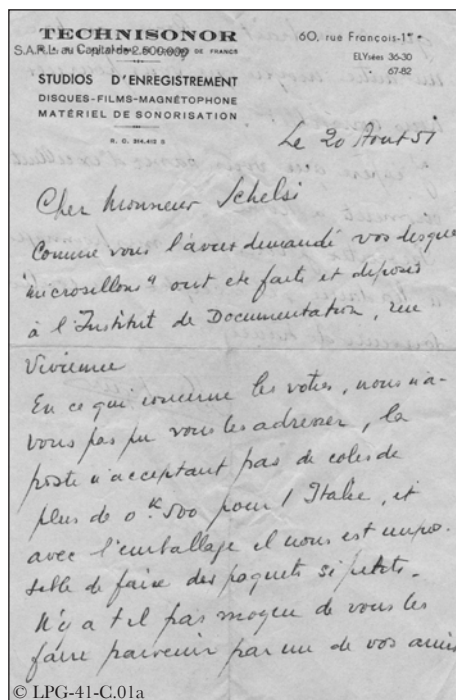 TECHNISONOR
S.A.R.L. au Capital de 2.500.000 DE FRANCS
STUDIOS D'ENREGISTREMENT
DISQUES-FILMS-MAGNÉTOPHONE
MATÉRIEL DE SONORISATION
R. C. 314,412 B
60, rue François-1er
ELYsées 36-30
67-82
Le 20 Aout 51
Cher Monsieur Schelsi
Comme vous l'avez demandé vos disques
"microsillons" ont ete faits et deposés
à l'Institut de Documentation, rue
Vivienne
En ce qui concerne les votres, nous n'a-
vons pas pu vous les adresser, la
poste n'acceptant pas de colis de
plus de 0 K 500 pour l'Italie, et
avec l'emballage il nous est impo-
ssible de faire des paquets si petits.
N'y a t il pas moyen de vous les
faire parvenir par un de vos amis
© LPG-41-C.01a